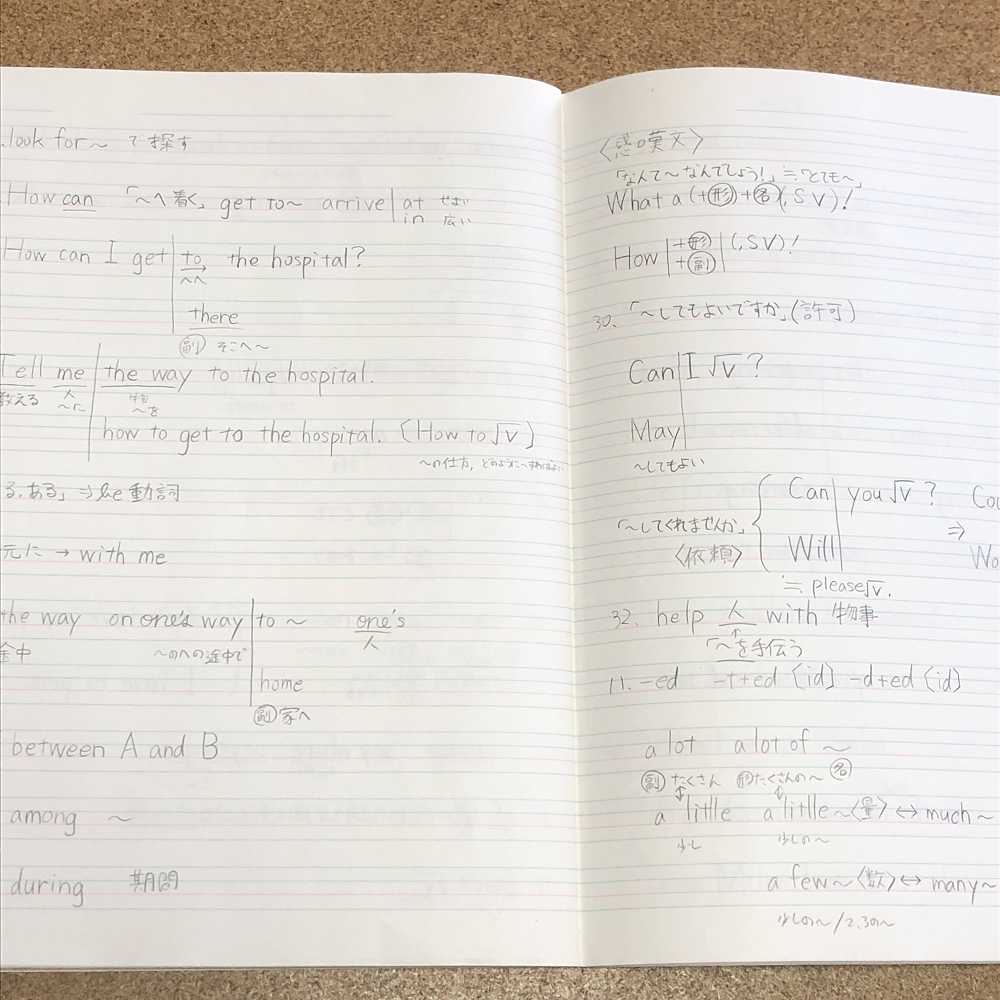 look for ～ で探す
How can 「～へ着く」 get to～ arrive at せまい
in 広い
How can I get to the hospital?
～へ
there
副 そこへ～
Tell me the way to the hospital.
教える 人 ～に 物 ～を
how to get to the hospital. (How to √V)
～の仕方,
る,ある」 ⇒ be 動詞
元に → with me
the way on one's way to ～ one's
途中 ～のへの途中で 人
home
副 家へ
between A and B
among ～
during 期間
〈感嘆文〉
「なんて～なんでしょう!」≒「とても～」
What a (+形)+名(, S V)!
How +形 (, S V)!
+副
30. 「～してもよいですか」(許可)
Can I √V ?
May
～してもよい
Can you √V ? Cou
「～してくれませんか」 ⇒
〈依頼〉 Will Wo
≒ please √V.
32. help 人 with 物事
↑
「～を手伝う
11. -ed -t+ed [id] -d+ed [id]
a lot a lot of ～
副 たくさん 形 たくさんの～ 名
↕ ↕
a little a little～〈量〉↔ much～
少し 少しの～
a few～〈数〉↔ many～
少しの～/2,3の～